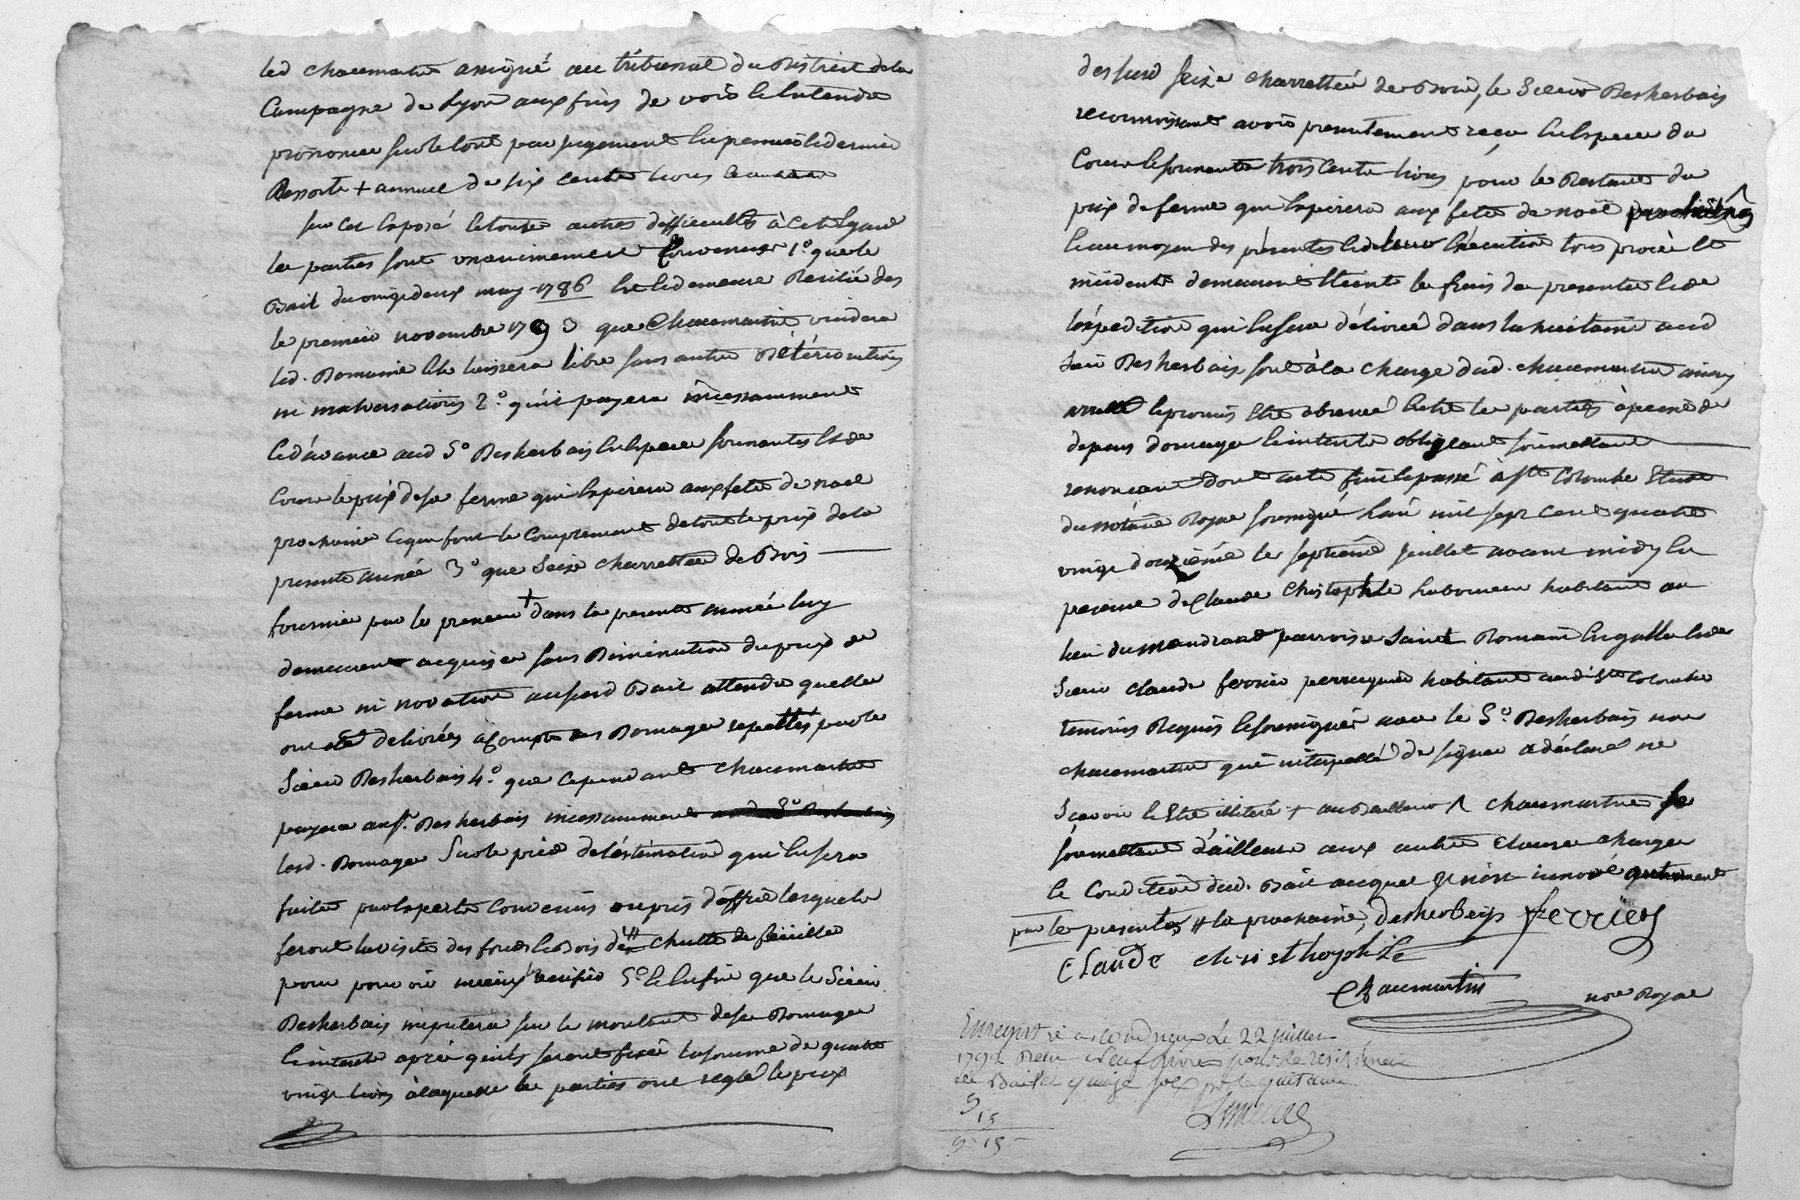 led chaumartin assigné au tribunal du District de la
Campagne de Lyon aux fins de voir
prononcer sur le tout par jugement en premier et dernier
Ressort + annuel de six cents livres
sur cet Exposé et toutes autres difficultés à cet Egard
les parties sont unanimement Convenues 1.º que le
Bail du onze deux may 1786 Est et demeure Résilié des
le premier novembre 1793 que Chaumartin vuidera
led. Domaine et le laissera libre sans autre Détériorations
ni malversations 2.º qu'il payera incessamment
et d'avance aud S.º Desherbais En Espece sonnantes et de
Cours le prix de sa ferme qui Expirera aux fetes de noel
prochaine Ce qui font le Complement de tout le prix de la
presente année 3º que Seize charrettée de Bois
fournie par le preneur + dans la presente année luy
demeurent acquise sans Diminution du prix de
ferme ni novation audit Bail attendu quelles
ont été delivrées à Compte des Domages repettés par le
Sieur Desherbais 4.º que Cependant Chaumartin
payera au Sr. Desherbais incessamment
lesd. Domages Sur le pied de l'Estimation qui En sera
faite par Experts Convenus ou pris d'office lesquels
feront la visite des fonds et Bois à la chutte des feuilles
pour pouvoir mieux verifier 5.º Et Enfin que le Sieur
Desherbais imputera sur le montant de ses Domages
Et interets après qu'ils seront fixés la somme de quatre
vingt livres à laquelle les parties ont reglé le prix
desused Seize charrettée de Bois, le Sieur Desherbais
reconnoissant avoir presentement reçu En Espece du
Cours Et sonnante trois Cents livres pour le Restant du
prix de ferme qui Expirera aux fetes de noel prochaines
Et au moyen des présentes Et de leur Execution tous procès Et
incidents demeurent Eteint les frais des presentes Et de
l'expedition qui En sera délivré dans la huitaine aud
Sieur Desherbais sont à la charge dud. chaumartin ainsy
arretté Et promis Etre observé Entre les parties à peine de
depens domages Et interets obligeant soumettant
renonceant Dont acte fait Et passé à Ste Colombe Etude
du notaire Royal soussigné L'an mil sept cent quatre
vingt douzième le septième juillet avant midy En
presence de Claude Christophle laboureur habitant au
lieu du mandrand parroisse Saint Romain En galle Et de
Sieur Claude ferrier perruquier habitant audit Ste Colombe
temoins Requis Et soussignés avec le S.º Desherbais non
chaumartin qui interpellé de signer a déclaré ne
Scavoir Et Etre illiteré + au Bailleur Λ chaumartin se
soumettant d'ailleurs aux autres Clauses charges
Et Conditions dud. Bail auquel Il n'est innové autrement
par les presentes # la prochaine, Desherbeys Ferrier
Claude christhophle
Chaumartin not Royal
Enregistré a Condrieu Le 22 juillet
1792 Reçu Neuf livres pour la resiliation
de Bail et quinze sols pr la quittance
9
15
9 - 15 -